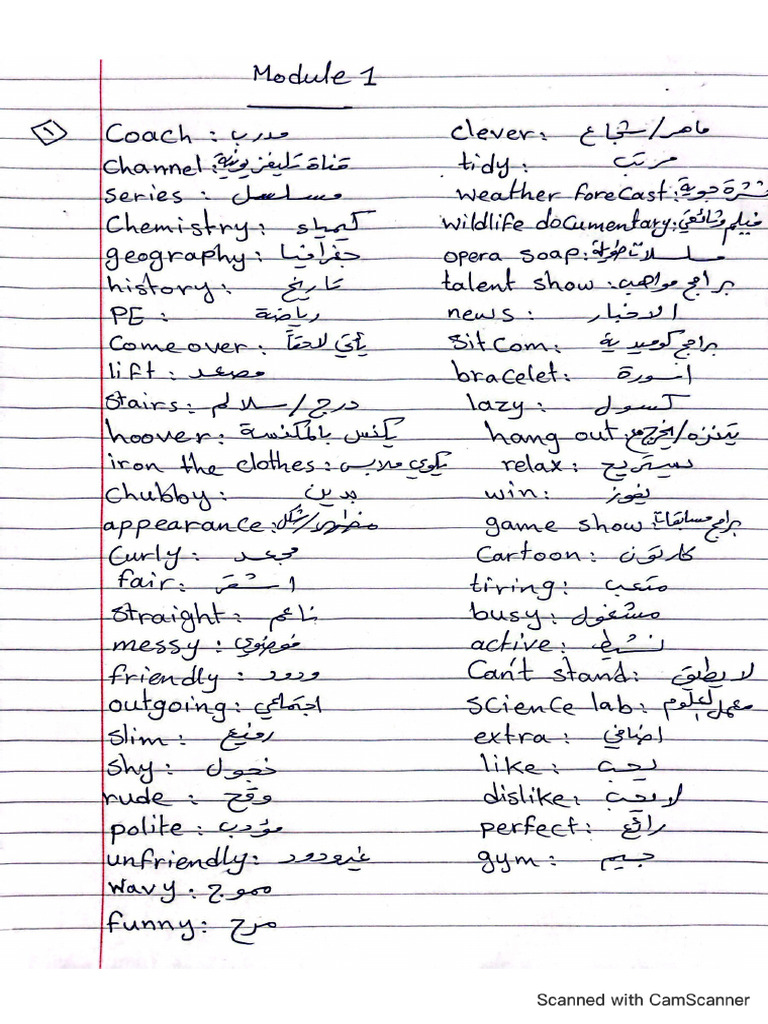 Module 1
١
Coach : مدرب
Channel : قناة تليفزيونية
series : مسلسل
Chemistry : كيمياء
geography : جغرافيا
history : تاريخ
PE : رياضة
Come over : يأتي لاحقاً
lift : مصعد
Stairs : درج / سلالم
hoover : يكنس بالمكنسة
iron the clothes : يكوي ملابس
Chubby : بدين
appearance : مظهر / شكل
Curly : مجعد
fair : اشقر
straight : ناعم
messy : فوضوي
friendly : ودود
outgoing : اجتماعي
slim : رفيع
shy : خجول
rude : وقح
polite : مؤدب
unfriendly : غير ودود
wavy : مموج
funny : مرح
clever : ماهر / شجاع
tidy : مرتب
weather forecast : نشرة جوية
wildlife documentary : فيلم وثائقي
opera soap : مسلسلات طويلة
talent show : برامج مواهب
news : الاخبار
SitCom : برامج كوميدية
bracelet : اسورة
lazy : كسول
hang out : يتنزه / يخرج مع
relax : يستريح
win : يفوز
game show : برامج مسابقات
Cartoon : كارتون
tiring : متعب
busy : مشغول
active : نشيط
Can't stand : لا يطيق
science lab : معمل العلوم
extra : اضافي
like : يحب
dislike : لا يحب
perfect : رائع
gym : جيم
Scanned with CamScanner